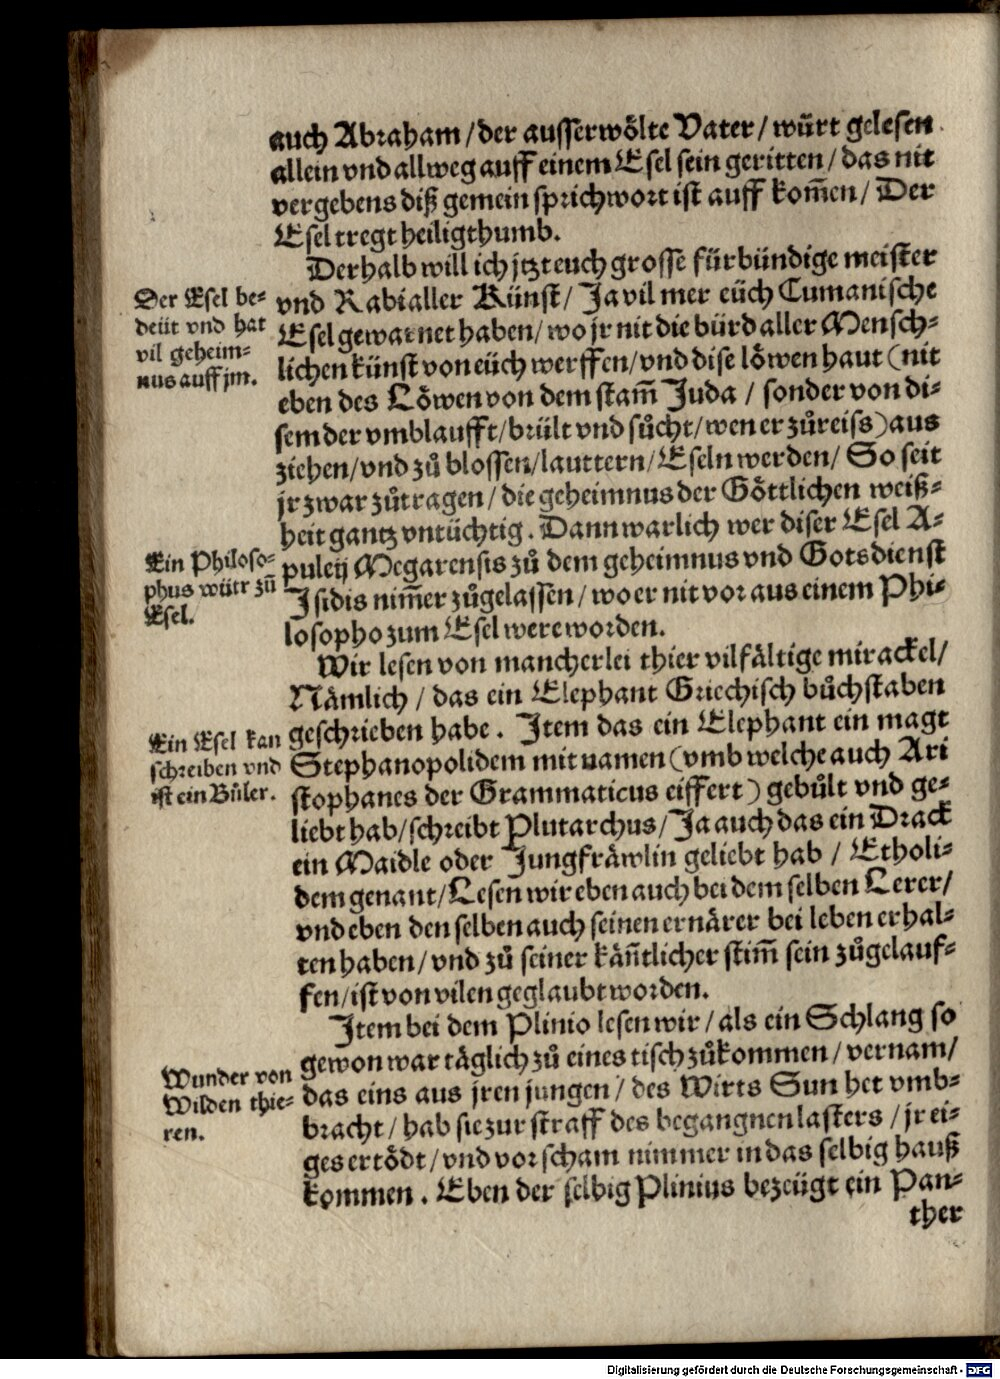 auch Abraham / der ausserwo̊lte Vater / wu̇rt gelesen
allein vnd allweg auff einem Esel sein geritten / das nit
vergebens diß gemein sprichwort ist auff kom̃en / Der
Esel tregt heiligthumb.
Derhalb will ich jtzt euch grosse fürbündige meister
Der Esel be⸗
deüt vnd hat
vil geheim⸗
nus auff jm.
vnd Rabi aller Künst / Ja vil mer eüch Cumanische
Esel gewarnet haben / wo jr nit die bürd aller Mensch⸗
lichen künst von eüch werffen / vnd dise löwen haut (nit
eben des Löwen von dem stam̃ Juda / sonder von di⸗
sem der vmblaufft / brült vnd sůcht / wen er zůreiss) aus
ziehen / vnd zů blossen / lauttern / Eseln werden / So seit
jr zwar zůtragen / die geheimnus der Göttlichen weiß⸗
heit gantz vntüchtig. Dann warlich wer diser Esel A⸗
Ein Philoso⸗
phus wütr zũ
Esel.
puleij Megarensis zů dem geheimnus vnd Gotsdienst
Isidis nim̃er zůgelassen / wo er nit vor aus einem Phi⸗
losopho zum Esel were worden.
Wir lesen von mancherlei thier vilfältige mirackel /
Nämlich / das ein Elephant Griechisch bůchstaben
Ein Esel kan
schreiben vnd
ist ein Bůler.
geschrieben habe. Item das ein Elephant ein magt
Stephanopolidem mit namen (vmb welche auch Ari
stophanes der Grammaticus eiffert) gebůlt vnd ge⸗
liebt hab / schreibt Plutarchus / Ja auch das ein Drack
ein Maidle oder Jungfräwlin geliebt hab / Etholi⸗
dem genant / Lesen wir eben auch bei dem selben Lerer /
vnd eben den selben auch seinen ernärer bei leben erhal⸗
ten haben / vnd zů seiner kän̄tlicher stim̃ sein zůgelauf⸗
fen / ist von vilen geglaubt worden.
Item bei dem Plinio lesen wir / als ein Schlang so
Wunder von
Wilden thie⸗
ren.
gewon war täglich zů eines tisch zůkommen / vernam /
das eins aus jren jungen / des Wirts Sun het vmb⸗
bracht / hab sie zur straff des begangnen lasters / jr ei⸗
ges ertödt / vnd vor scham nimmer in das selbig hauß
kommen. Eben der selbig Plinius bezeügt ein Pan⸗
ther
Digitalisierung gefördert durch die Deutsche Forschungsgemeinschaft - DFG